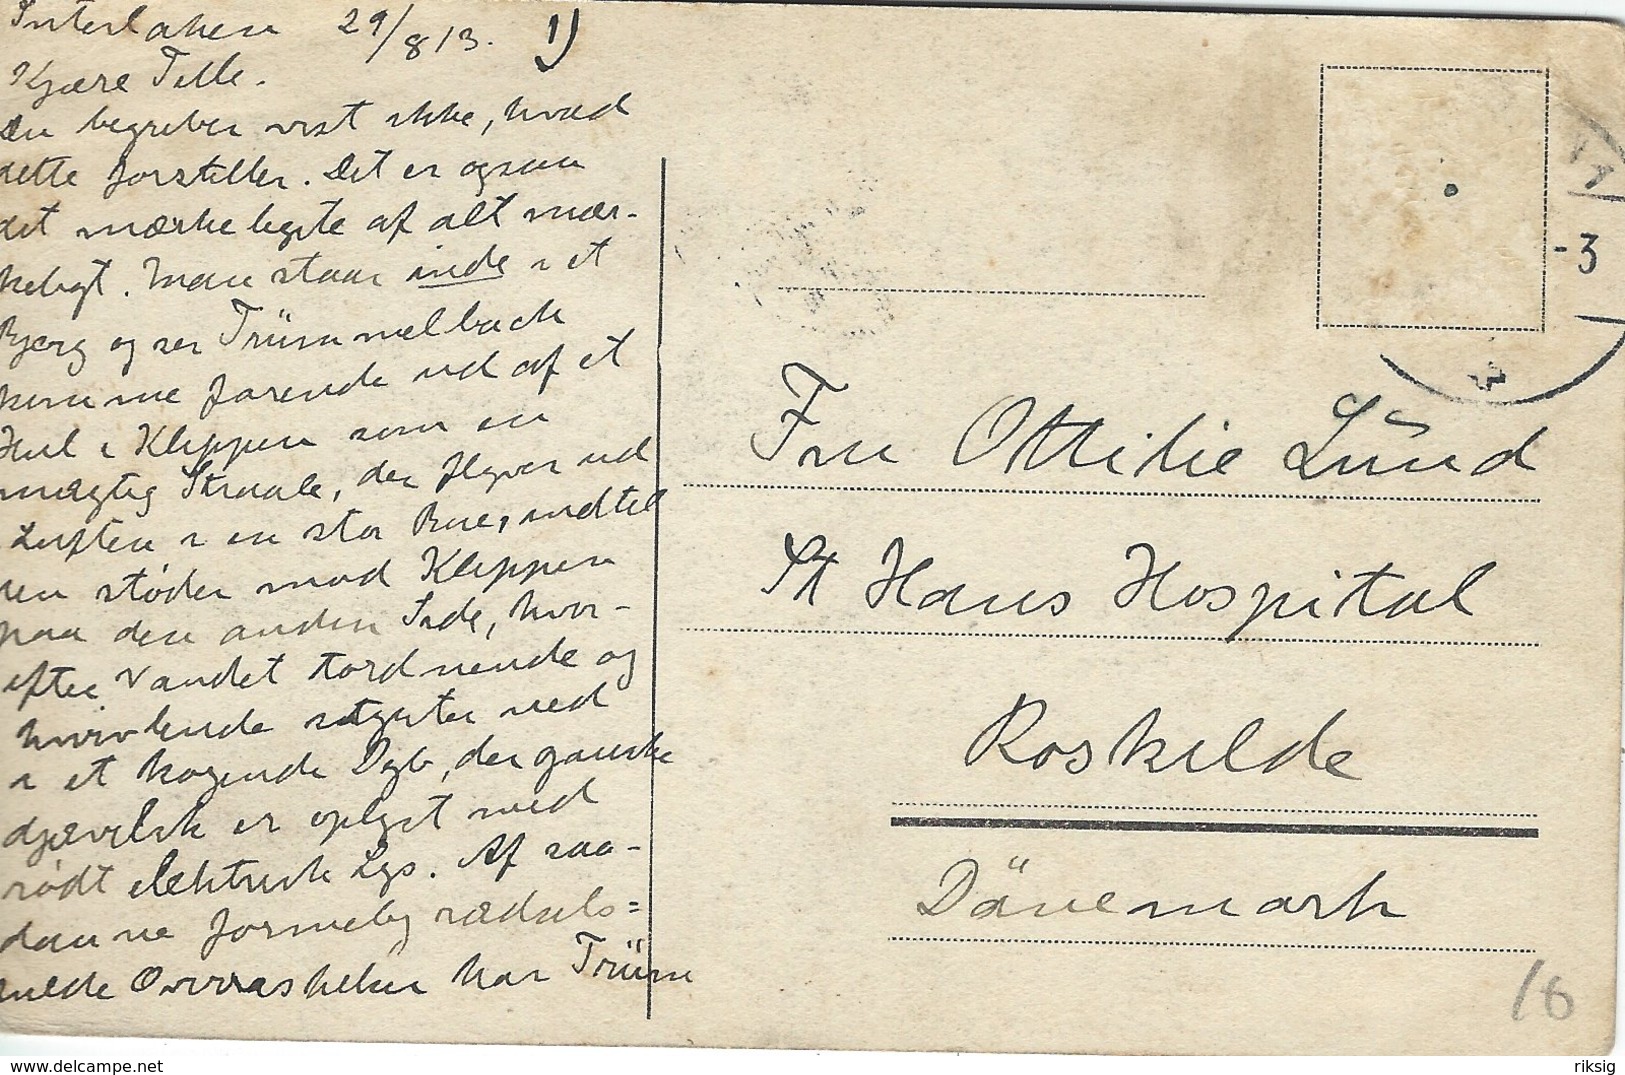 Interlaken 29/8 13. 1)
Kjære Tille.
Du begriber vist ikke, hvad
dette forstiller. Det er ogsaa
det mærkeligste af alt mær-
keligt. Man staar inde i et
Bjerg og ser Trümmelbach
komme farende ud af et
Hul i Klippen som en
mægtig Straale, der flyver ud
i Luften i en stor Bue, indtil
den støder mod Klippen
paa den anden Side, hvor-
efter Vandet tordnende og
hvirvlende styrter ned
i et kogende Dyb, der ganske
djævelsk er oplyst med
rødt elektrisk Lys. Af saa-
danne formelig rædsels=
fulde Overraskelser har Trüm
Fru Ottilie Lund
St Hans Hospital
Roskilde
Dänemark
-3
16
riksig